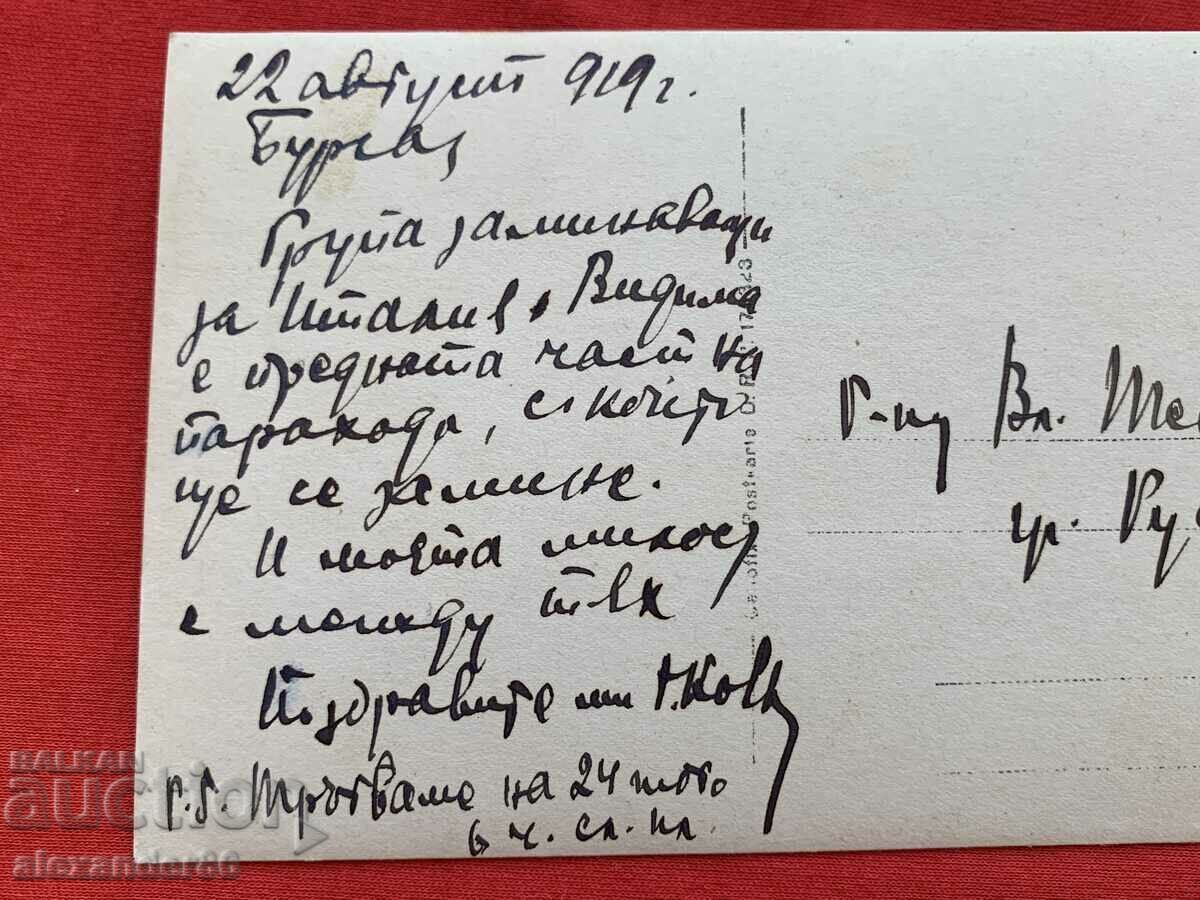 22 август 919 г.
Бургаз
Група заминаващи
за Италия. Видима
е предната част на
парахода, с който
ще се замине.
И моята милост
е между тях
Поздравите ми Г.
P.S. Тръгваме на 24 того
6 ч. сл. пл.
Г-ну Вл.
гр.
Postkarte
BALKAN
auction
alexander86